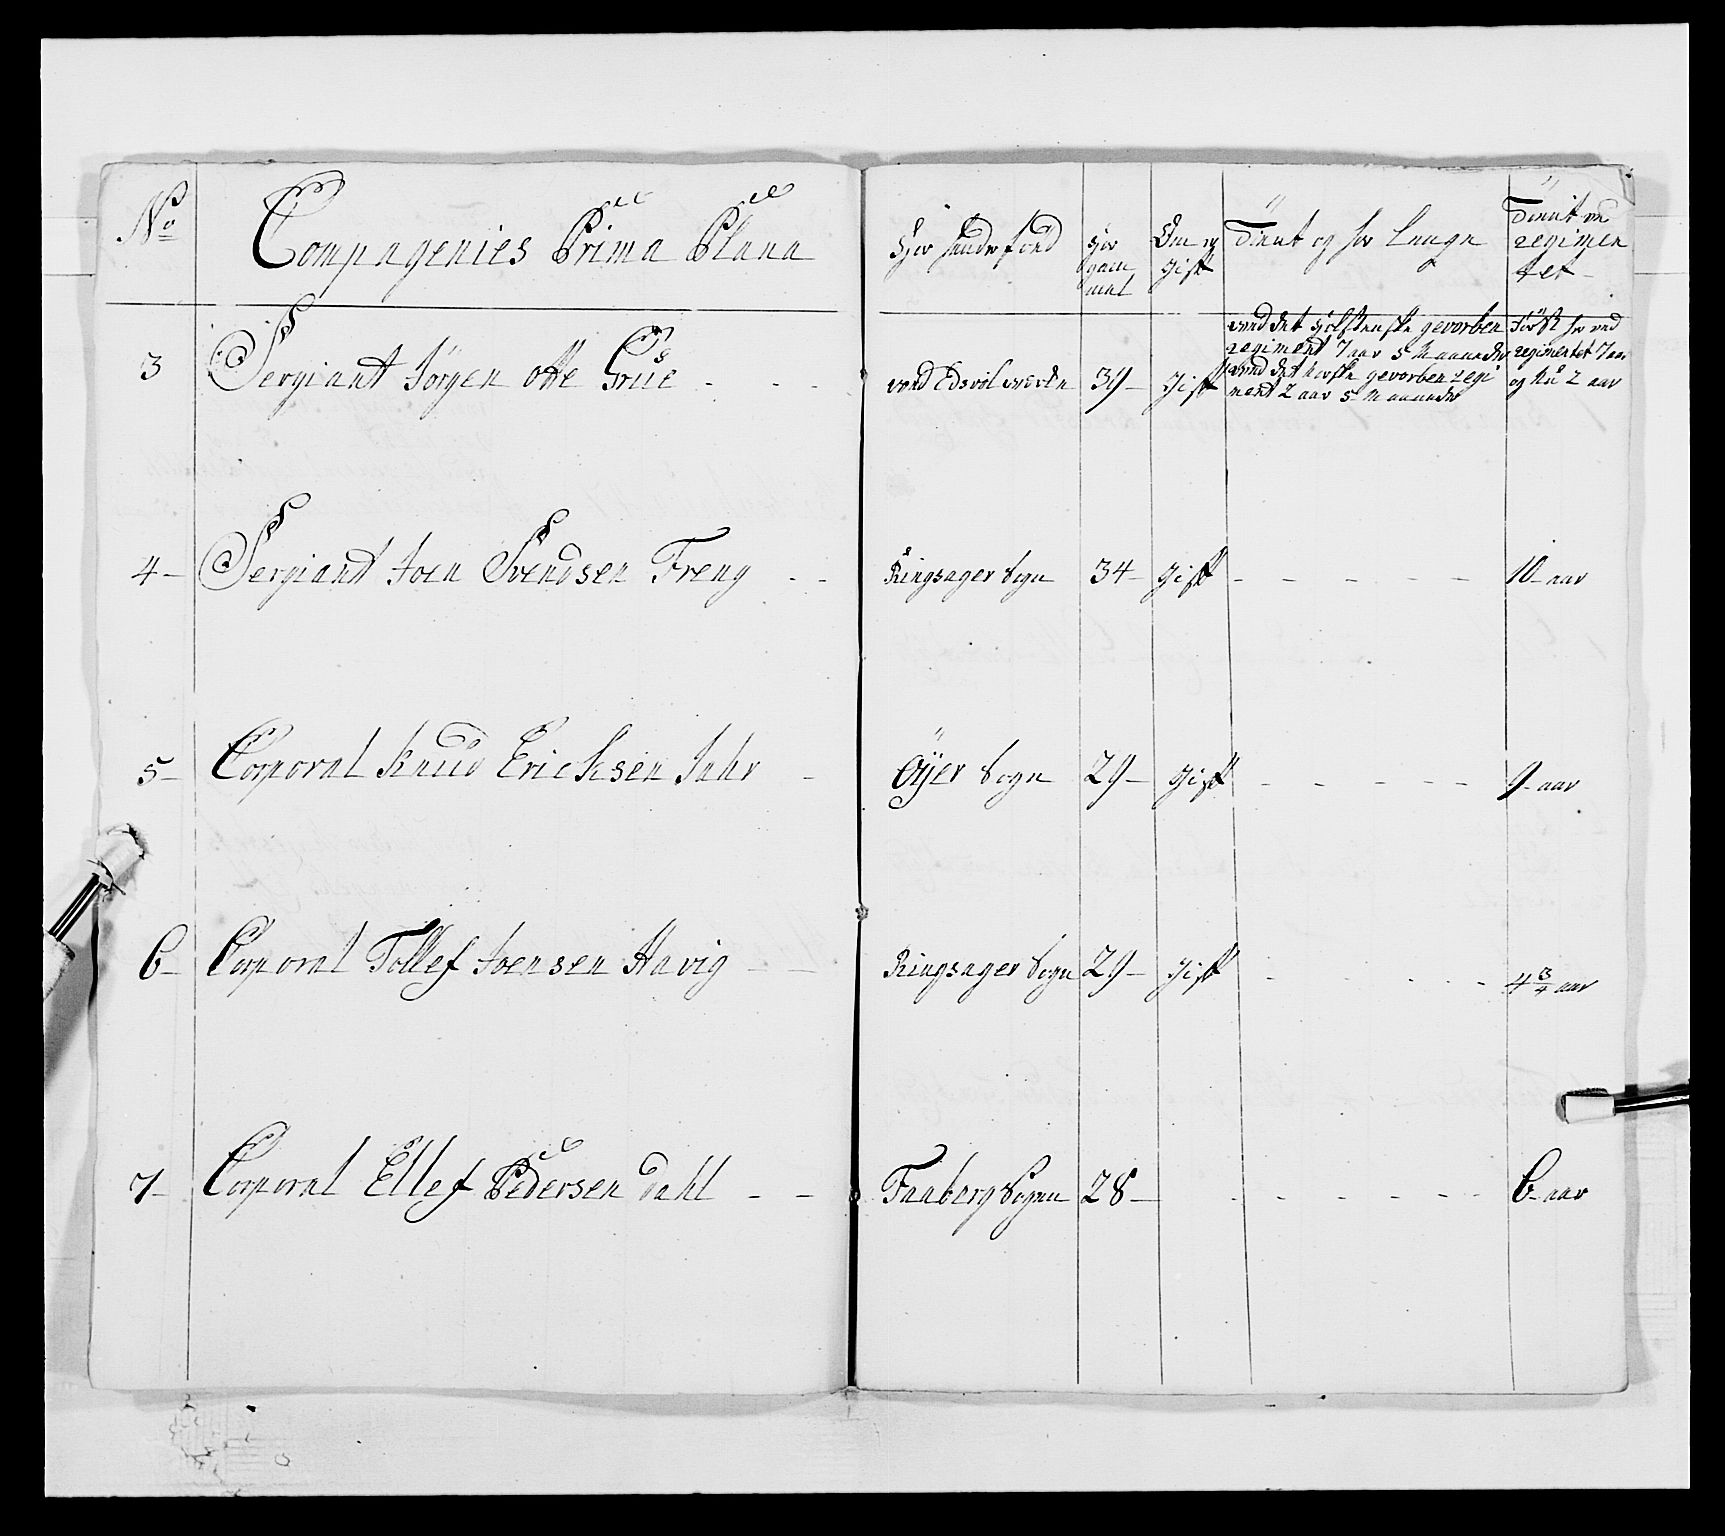 No Compagenies Prima Plana Hvor fændes fød hvor gam mel Om og gift Tient og hvor Længe Tient ved regimen tet
3 Sergiant Jörgen Otte Grüe - - - ved Edsvol værcken 39 - gift
ved det holstenske gevorben
regiment 7 aar 5 Maaneder
ved det norske gevorben regi
ment 2 aar 5 Maaneder
först her ved
regimentet 7 aar
og Nu 2 aar
4 - Sergiant Joen Svendsen Freng - - Ringsager Sogn 34 - gift - - - - - 10 - aar
5 - Corporal Knud Ericksen Jahr - Öyer Sogn 29 - gift - - - - - 9 - aar
6 - Corporal Tollef Joensen Havig - - Ringsager Sogn 29 - gift - - - - 4 3/4 aar
7 - Corporal Ellef Pedersen Dahl - - Faaberg Sogen 28 - - - - - - 6 - aar